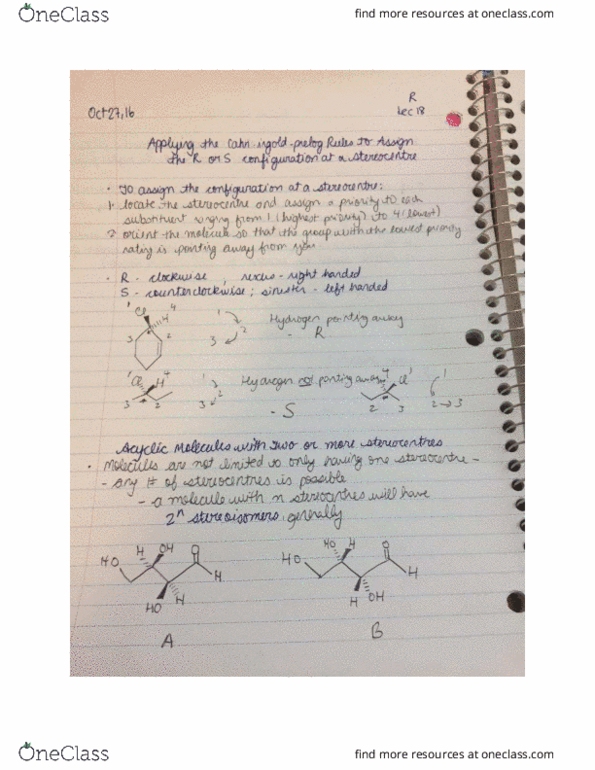 OneClass
find more resources at oneclass.com
R
Oct 27, 16
Lec 18
Applying the Cahn-ingold-prelog Rules to Assign
the R or S configuration at a stereocentre
• To assign the configuration at a stereocentre:
1. locate the stereocentre and assign a priority to each
substituent ranging from 1 (highest priority) to 4 (lowest)
2. orient the molecule so that the group with the lowest priority
rating is pointing away from you
• R - clockwise, rexus - right handed
S - counterclockwise; sinister - left handed
1 Cl 4
H
3 2
1
3 2
Hydrogen pointing away
- R
1 Cl H 4
3 2
1
3 2
Hydrogen not pointing away
- S
4 Cl 1
2 3
1
2 → 3
Acyclic Molecules with two or more stereocentres
• Molecules are not limited to only having one stereocentre -
- any # of stereocentres is possible
- a molecule with n stereocentres will have
2ⁿ stereoisomers, generally
HO H OH O H
HO H
A
HO HO H O H
H OH
B
OneClass
find more resources at oneclass.com